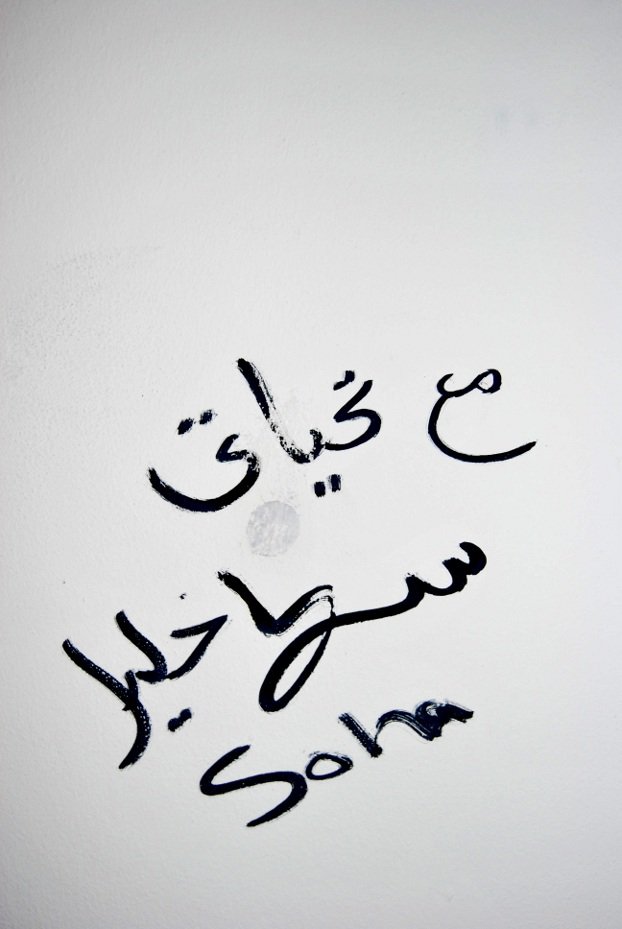 مع تحياتي
سها خليل
Soha